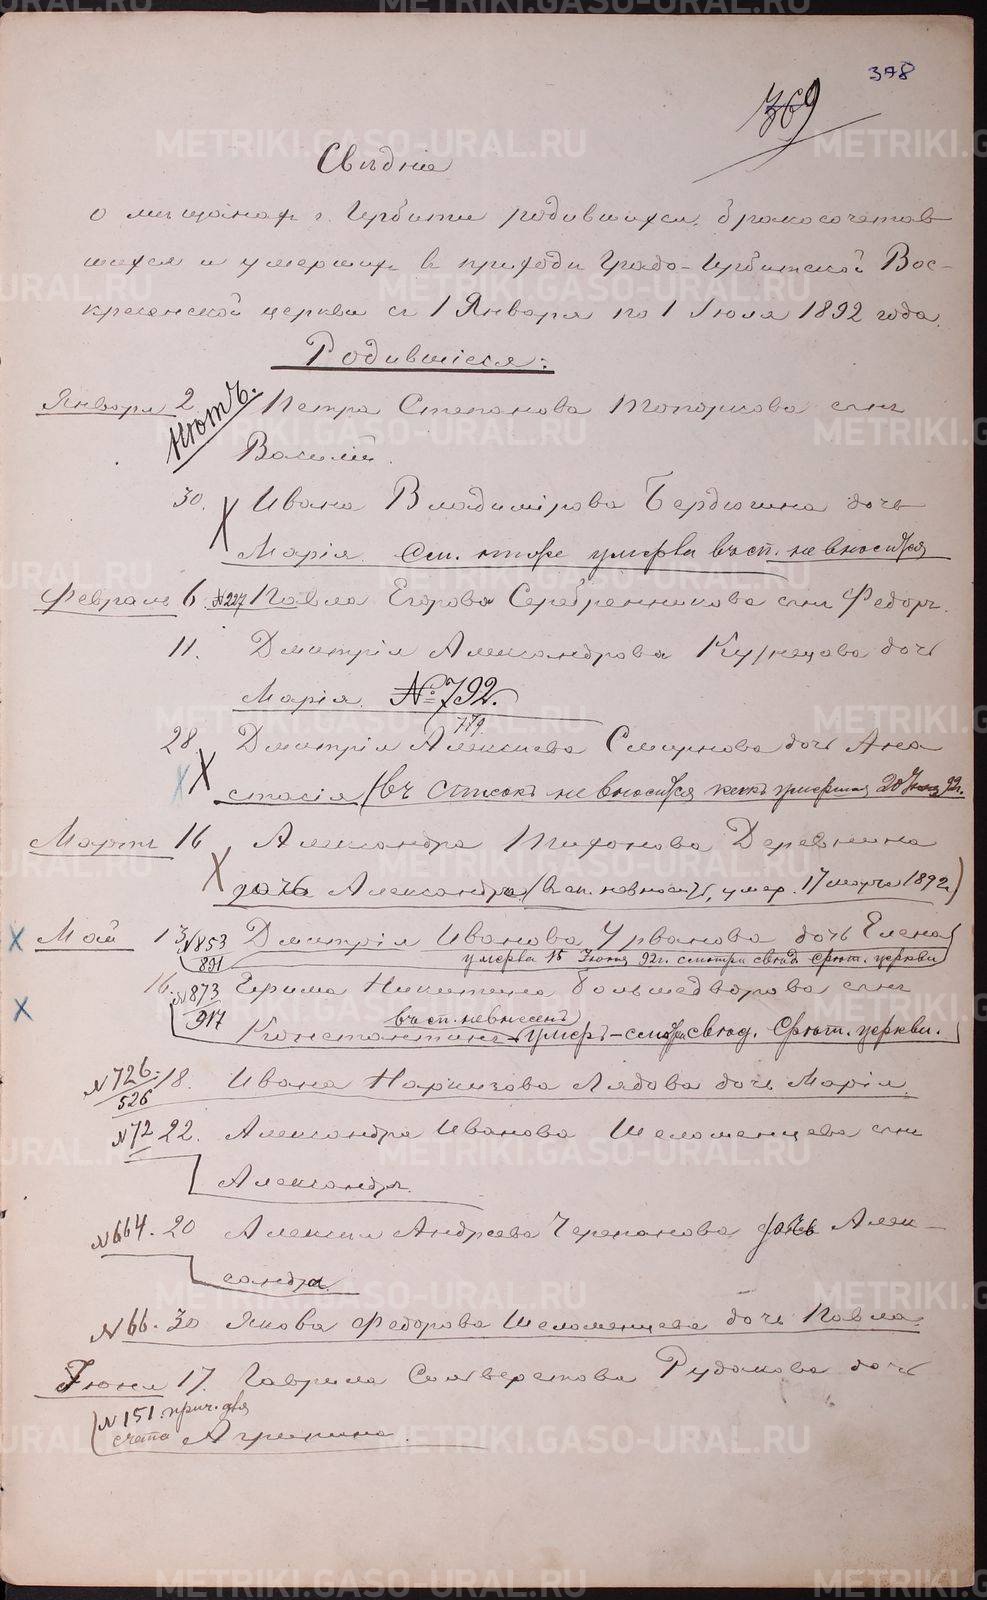 378
369
Свѣдніе
о мѣщанах г. Ирбити родившихся, бракосочетав
шихся и умерших в приходи Градо-Ирбитской Вос-
кресенской церкви съ 1 Января по 1 Іюля 1892 года.
Родившіеся:
Января 2 Петра Степанова Топоркова сынъ
Нютъ.
Василій.
30. Ивана Владимірова Бердюгина дочь
Марія. умерла въ сп. не вносится
Февраля 6 №227 Павла Егорова Серебренникова сынъ Федоръ.
11. Дмитрія Александрова Кузнецова дочь
Марія. №792.
779
28 Дмитрія Алексиева Смирнова дочь Ана
стасія (въ списокъ не вносится какъ умершая 20 92г.
Мартъ 16 Александра Тифонова Деревнина
дочь Александра (в сп. не вносит, умер. 17 марта 1892г)
Май 13 №853 Дмитрія Иванова Урванова дочь Елена
891 умерла 15 Іюня 92г. смотри свѣд. Срѣт. церкви
16. №873 Ефима Никитина Большедворова сынъ
917 въ сп. не внесенъ
Константинъ-умеръ-смотри свѣд. Срѣт. церкви.
№726. 18. Ивана Наркизова Лядова дочь Марія.
526
№72 22. Александра Иванова Шеломенцева сынъ
Александръ.
№664. 20 Алексия Андреева Черепанова дочь Алек-
сандра.
№66. 30 Якова Федорова Шеломенцева дочь Павла.
Іюня 17. Гаврила Силверстова Рудакова дочь
№151. прич. для
счета Агрипина.
METRIKI.GASO-URAL.RU